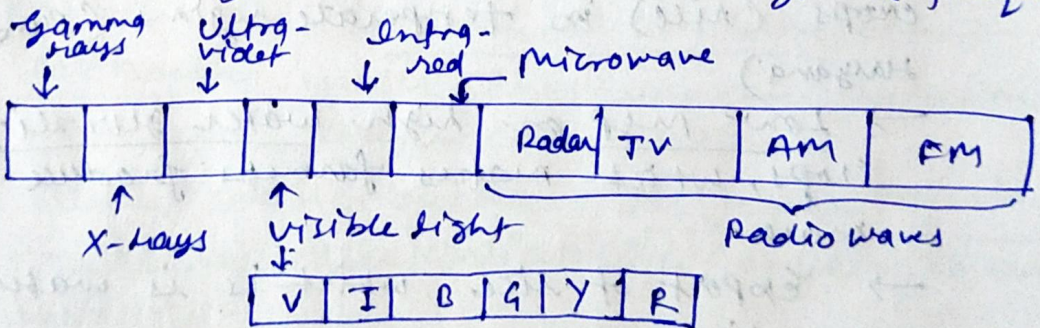 Gamma rays
Ultra-violet
Infra-red
Microwave
Radar TV AM FM
X-rays
Visible light
Radio waves
V I B G Y R